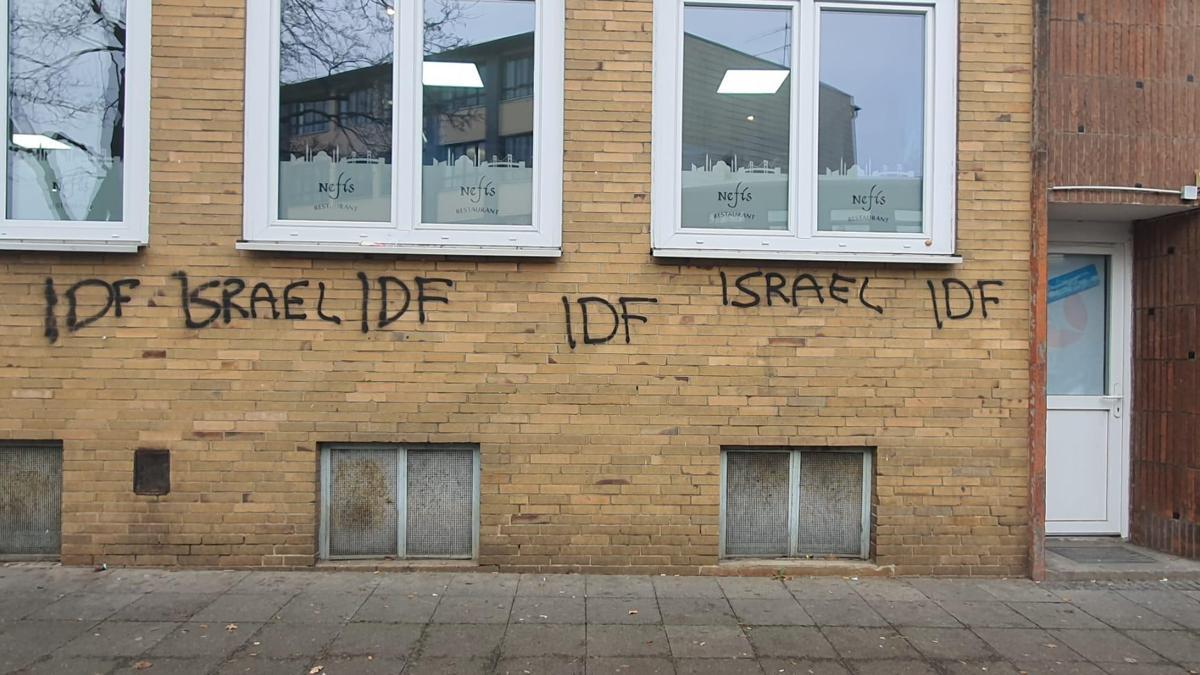 Nefis
RESTAURANT
Nefis
RESTAURANT
Nefis
RESTAURANT
Nefis
RESTAURANT
IDF ISRAEL IDF IDF ISRAEL IDF